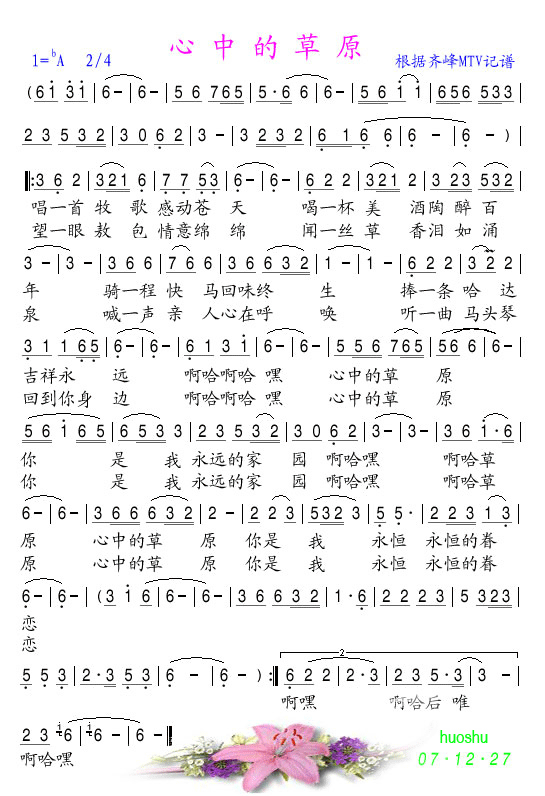 心中的草原
1=♭A 2/4 根据齐峰MTV记谱
(6i 3i | 6- | 6- | 5 6 765 | 5·6 6 | 6- | 6- | 5 6 i i | 656 533 |
2 3 532 | 3 0 6 2 | 3- | 3 232 | 6 1 6 6 | 6 - | 6 - ) |
|: 3 6 2 | 321 6 | 7 7 5 3 | 6- | 6- | 6 2 2 | 321 2 | 3 23 532 |
唱一首 牧 歌 感动苍 天 喝一杯 美 酒陶 醉 百
望一眼 敖 包 情意绵 绵 闻一丝 草 香泪 如 涌
3 - | 3 - | 3 6 6 | 7 6 6 | 3 6 6 3 2 | 1 - | 1 - | 6 2 2 | 3 2 2 |
年 骑一程 快 马回味终 生 捧一条 哈 达
泉 喊一声 亲 人心在呼 唤 听一曲 马头琴
3 1 | 1 6 5 | 6- | 6- | 6 1 3 i | 6- | 6- | 5 5 6 765 | 5 6 6 | 6- |
吉祥永 远 啊哈啊哈 嘿 心中的草 原
回到你身 边 啊哈啊哈 嘿 心中的草 原
5 6 i 6 5 | 6 5 3 3 | 2 3 5 3 2 | 3 0 6 2 | 3- | 3- | 3 6 | i·6 |
你 是 我 永远的家 园 啊哈嘿 啊哈草
你 是 我 永远的家 园 啊哈嘿 啊哈草
6- | 6- | 3 6 6 6 3 2 | 2 - | 2 2 3 | 532 3 | 5 5· | 2 2 3 1 3 |
原 心中的草 原 你是 我 永恒 永恒的眷
原 心中的草 原 你是 我 永恒 永恒的眷
6- | 6- | (3 i 6 | 6- | 6- | 3 6 6 3 2 | 1·6 | 2 2 3 2 3 |
恋
恋
5 5 3 | 2·3 5 3 | 6 - | 6 - ) :| 6 2 2 | 2·3 | 2 3 5·3 | 3 - |
2
啊嘿 啊哈后 唯
2 3 i6 | i6 - | 6 - |
啊哈嘿
huoshu
07·12·27